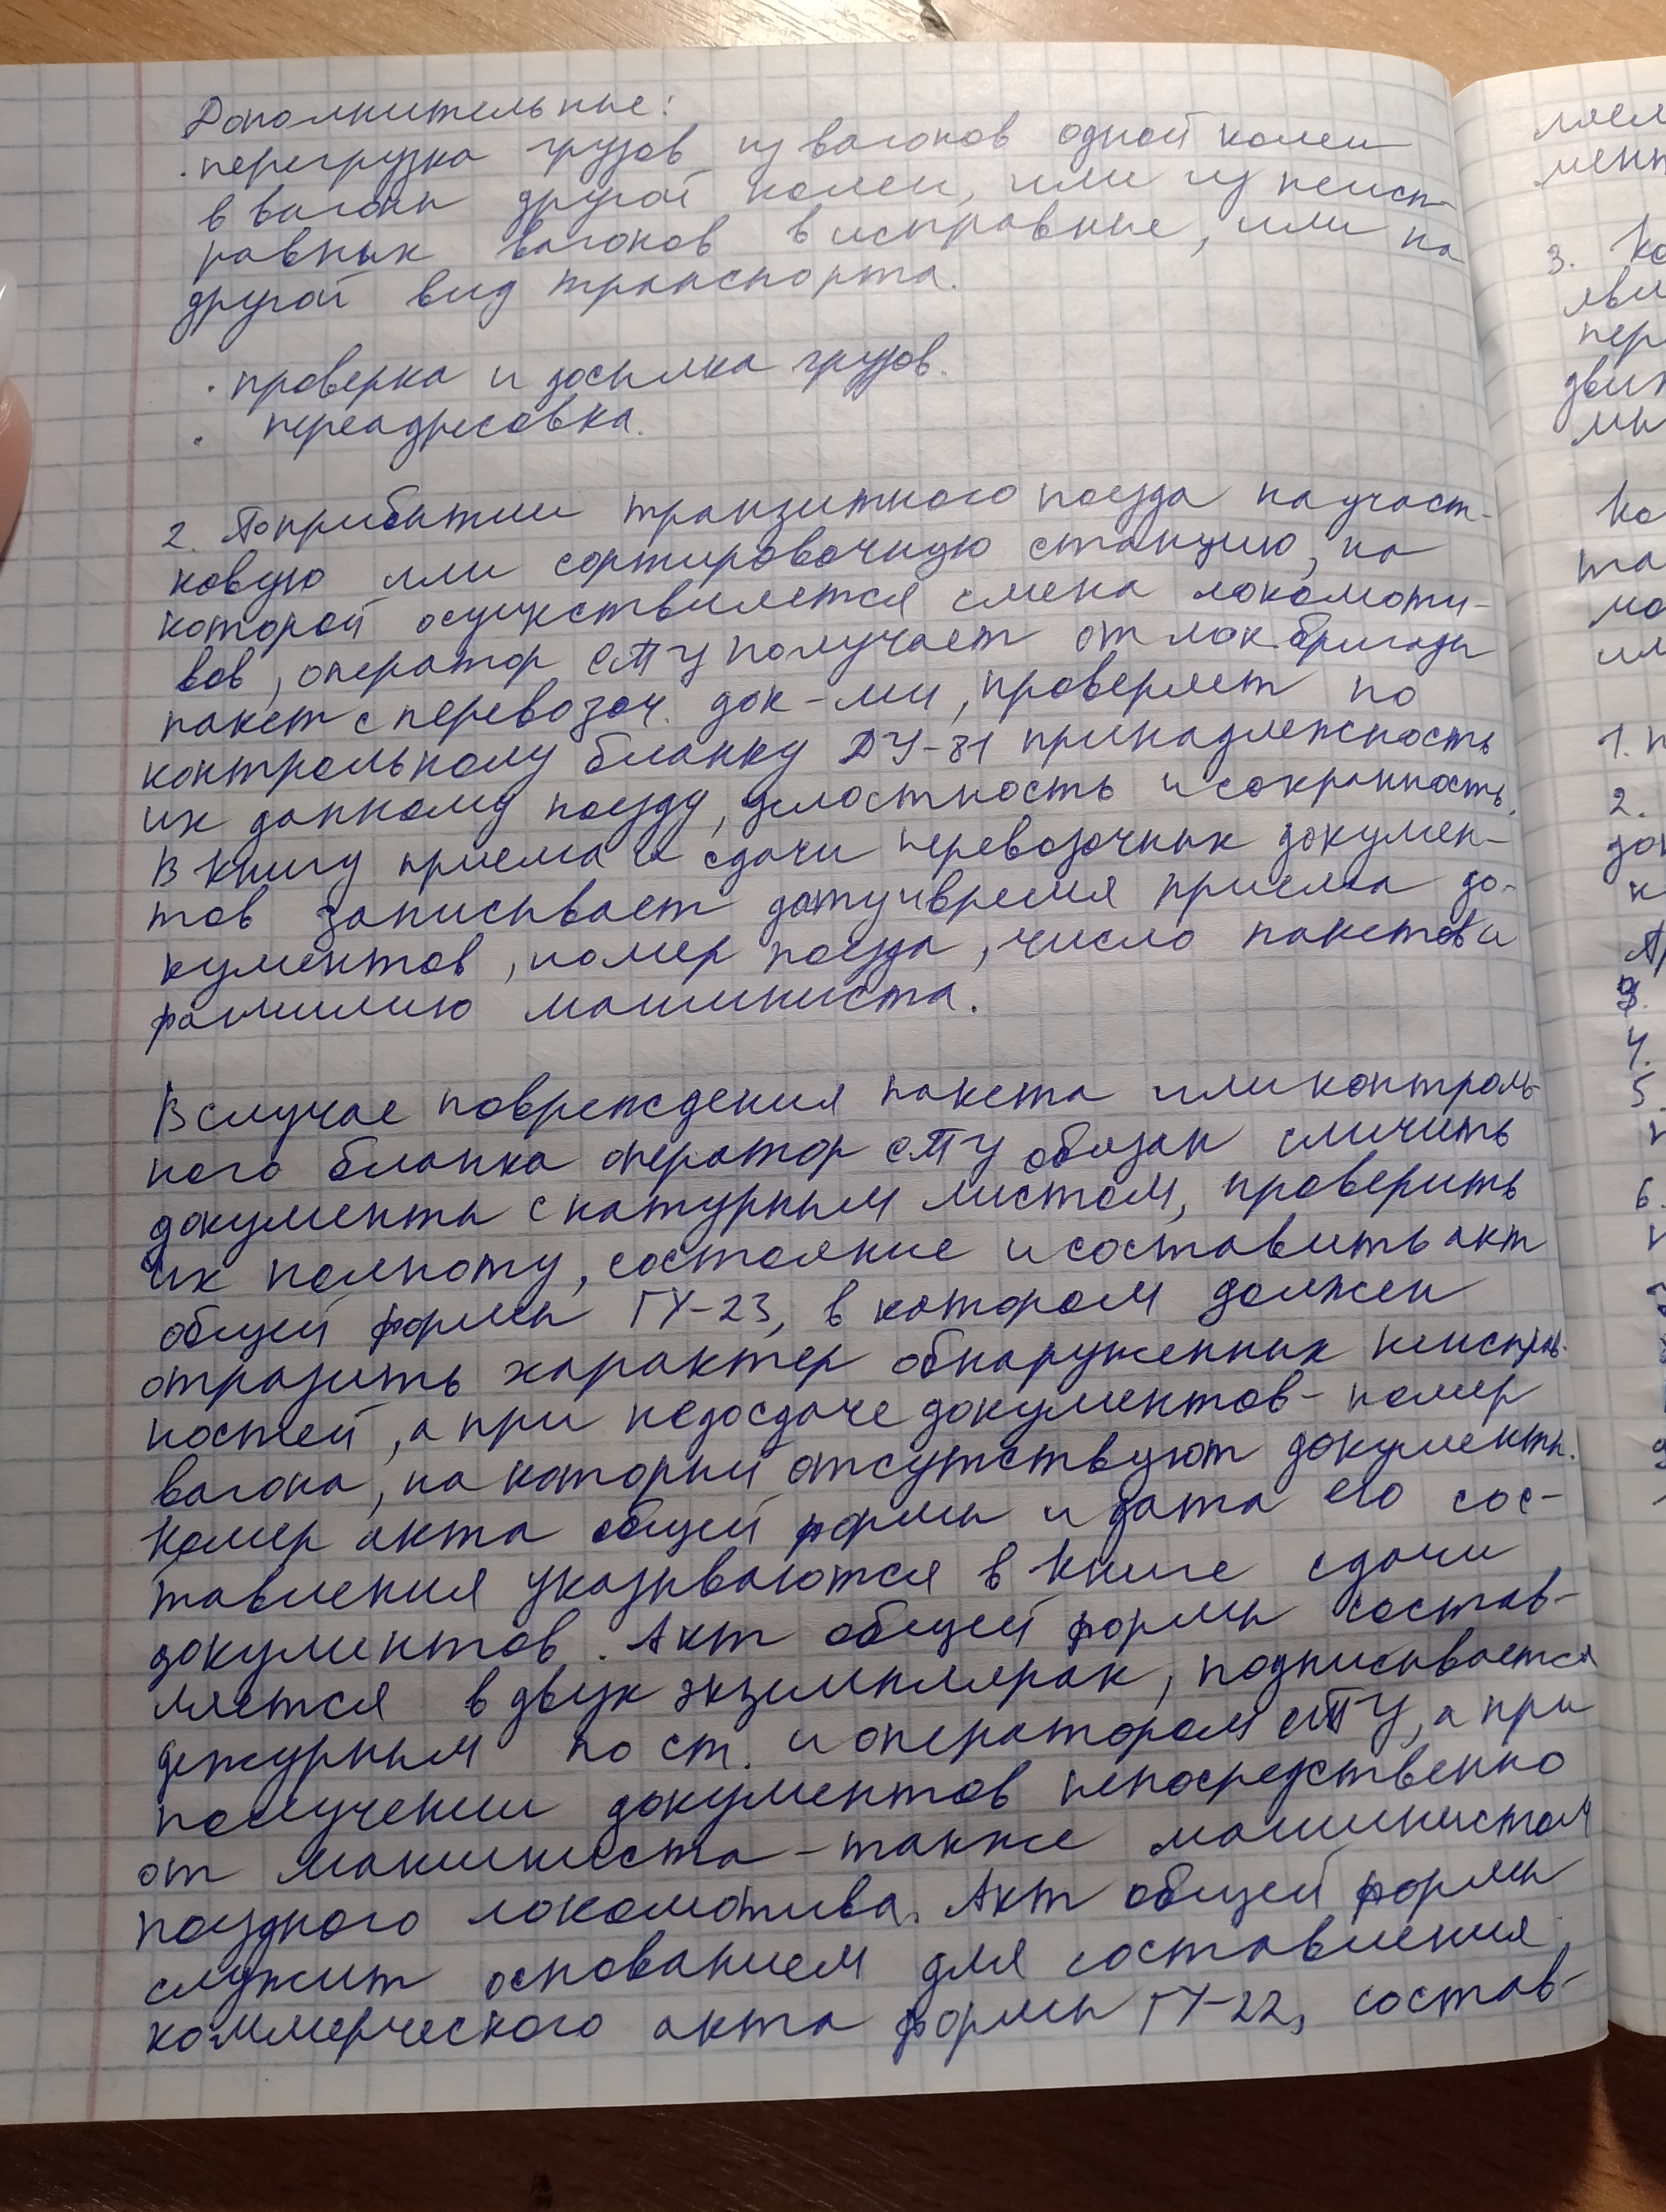 Дополнительные:
· перегрузка грузов из вагонов одной колеи
в вагоны другой колеи, или из неисп-
равных вагонов в исправные, или на
другой вид транспорта.
· проверка и досылка грузов.
· переадресовка.
2. По прибытии транзитного поезда на участ-
ковую или сортировочную станцию, на
которой осуществляется смена локомоти-
вов, оператор СТЦ получает от лок бригады
пакет с перевозоч. док-ми, проверяет по
контрольному бланку ДУ-81 принадлежность
их данному поезду, целостность и сохранность.
В книгу приема и сдачи перевозочных докумен-
тов записывает дату и время приема до-
кументов, номер поезда, число пакетов и
фамилию машиниста.
В случае повреждения пакета или контроль-
ного бланка оператор СТЦ обязан сличить
документы с натурным листом, проверить
их полноту, состояние и составить акт
общей формы ГУ-23, в котором должен
отразить характер обнаруженных неисправ-
ностей, а при недосдаче документов - номер
вагона, на который отсутствуют документы.
Номер акта общей формы и дата его сос-
тавления указываются в книге сдачи
документов. Акт общей формы состав-
ляется в двух экземплярах, подписывается
дежурным по ст. и оператором СТЦ, а при
получении документов непосредственно
от машиниста - также машинистом
поездного локомотива. Акт общей формы
служит основанием для составления
коммерческого акта формы ГУ-22, состав-
ляем
мент
3. Ко
пер
1. п
2.
4.
5.
6.